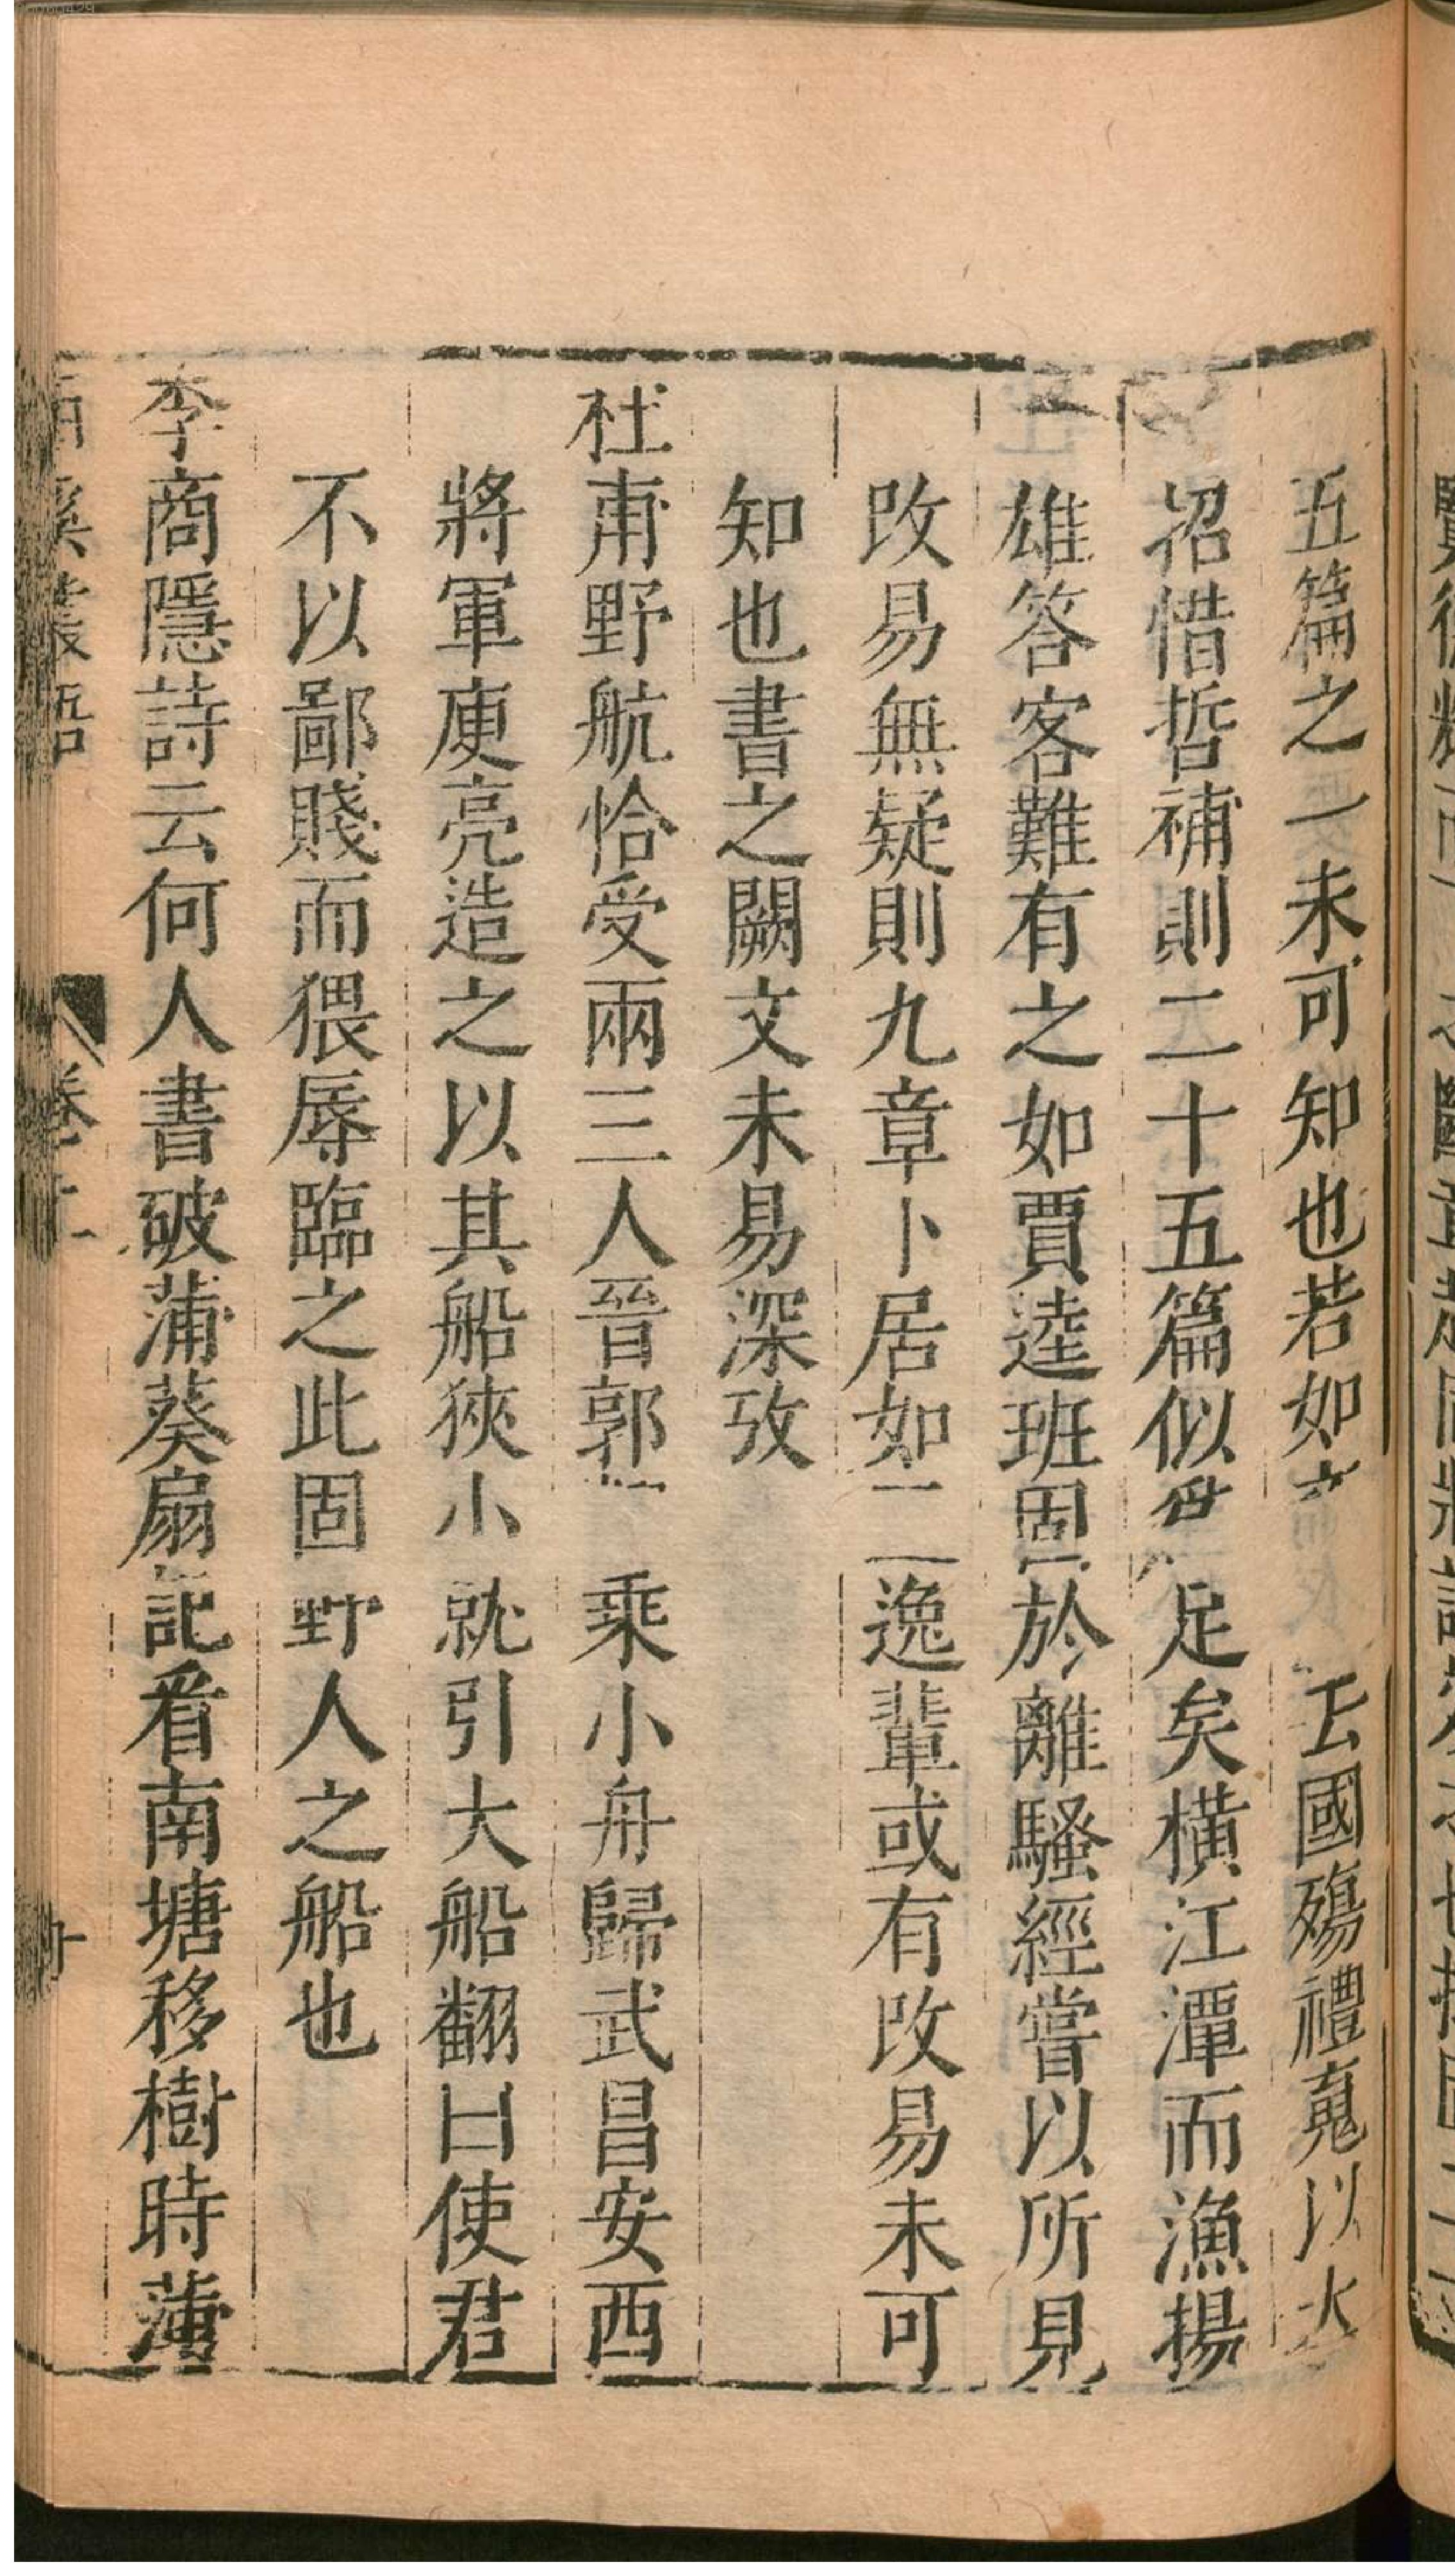 五篇之一未可知也若如
云國殤禮䰟以
招惜哲補則二十五篇似
足矣橫江潭而漁揚
雄答客難有之如賈逵班固
於離騷經嘗以所見
改易無疑則九章卜居如
二逸輩或有改易未可
知也書之闕文未易深攷
杜甫野航恰受兩三人晉郭
乘小舟歸武昌安西
將軍庾亮造之以其船狹小
就引大船翻曰使君
不以鄙賤而猥辱臨之此固
野人之船也
李商隱詩云何人書破蒲葵扇
記看南塘移樹時蒲
西溪叢語
卷上